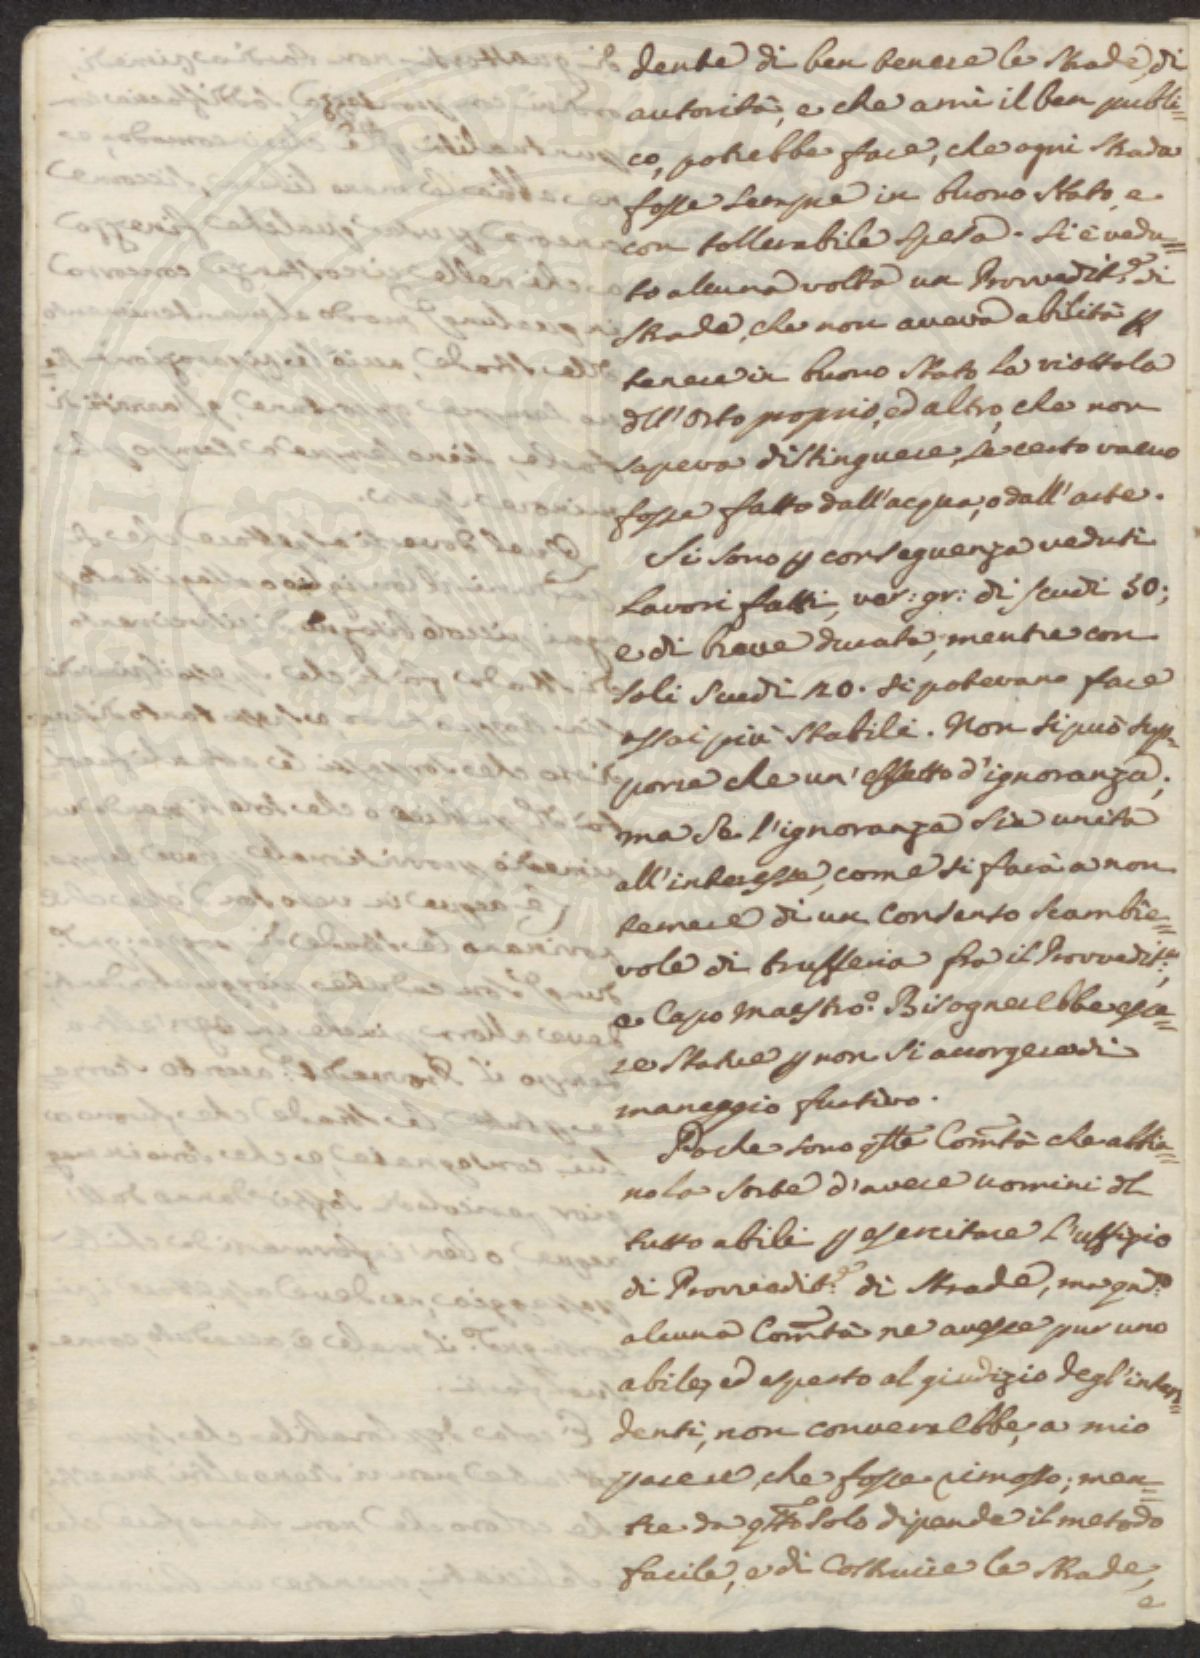 dente di ben tenere le strade, di
autorità, e che ami il ben publi=
co, potrebbe fare, che ogni strada
fosse sempre in buono stato, e
con tollerabile spesa. Si è vedu=
to alcuna volta un Provvedit.re di
strade, che non aveva abilità p
tenere in buono stato la viottola
dll'orto proprio, ed altro, che non
sapeva distinguere, se certo vacuo
fosse fatto dall'acqua, o dall'arte.
Si sono p conseguenza veduti
lavori fatti, ver: gr: di scudi 50;
e di breve durata; mentre con
soli scudi 20. si potevano fare
assai più stabili. Non si può supp=
porre che un'effetto d'ignoranza;
ma se l'ignoranza sia unita
all'interesse, come si farà a non
temere di un consenso scambie=
vole di trufferia fra il Provvedit.re,
e Capo Maestro? Bisognerebbe esse=
re statue p non si accorgere di
maneggio furtivo.
Poche sono qlle Com̃tà che abbia=
no la sorte d'avere uomini dl
tutto abili p esercitare l'uffizio
di Provvedit.re di strade, ma qnd.o
alcuna Com̃tà ne avesse pur uno
abile, ed esperto al giudizio degl'inten=
denti, non converrebbe, a mio
parere, che fosse rimosso; men=
tre da qsto solo dipende il metodo
facile, e di costruire le strade,
e